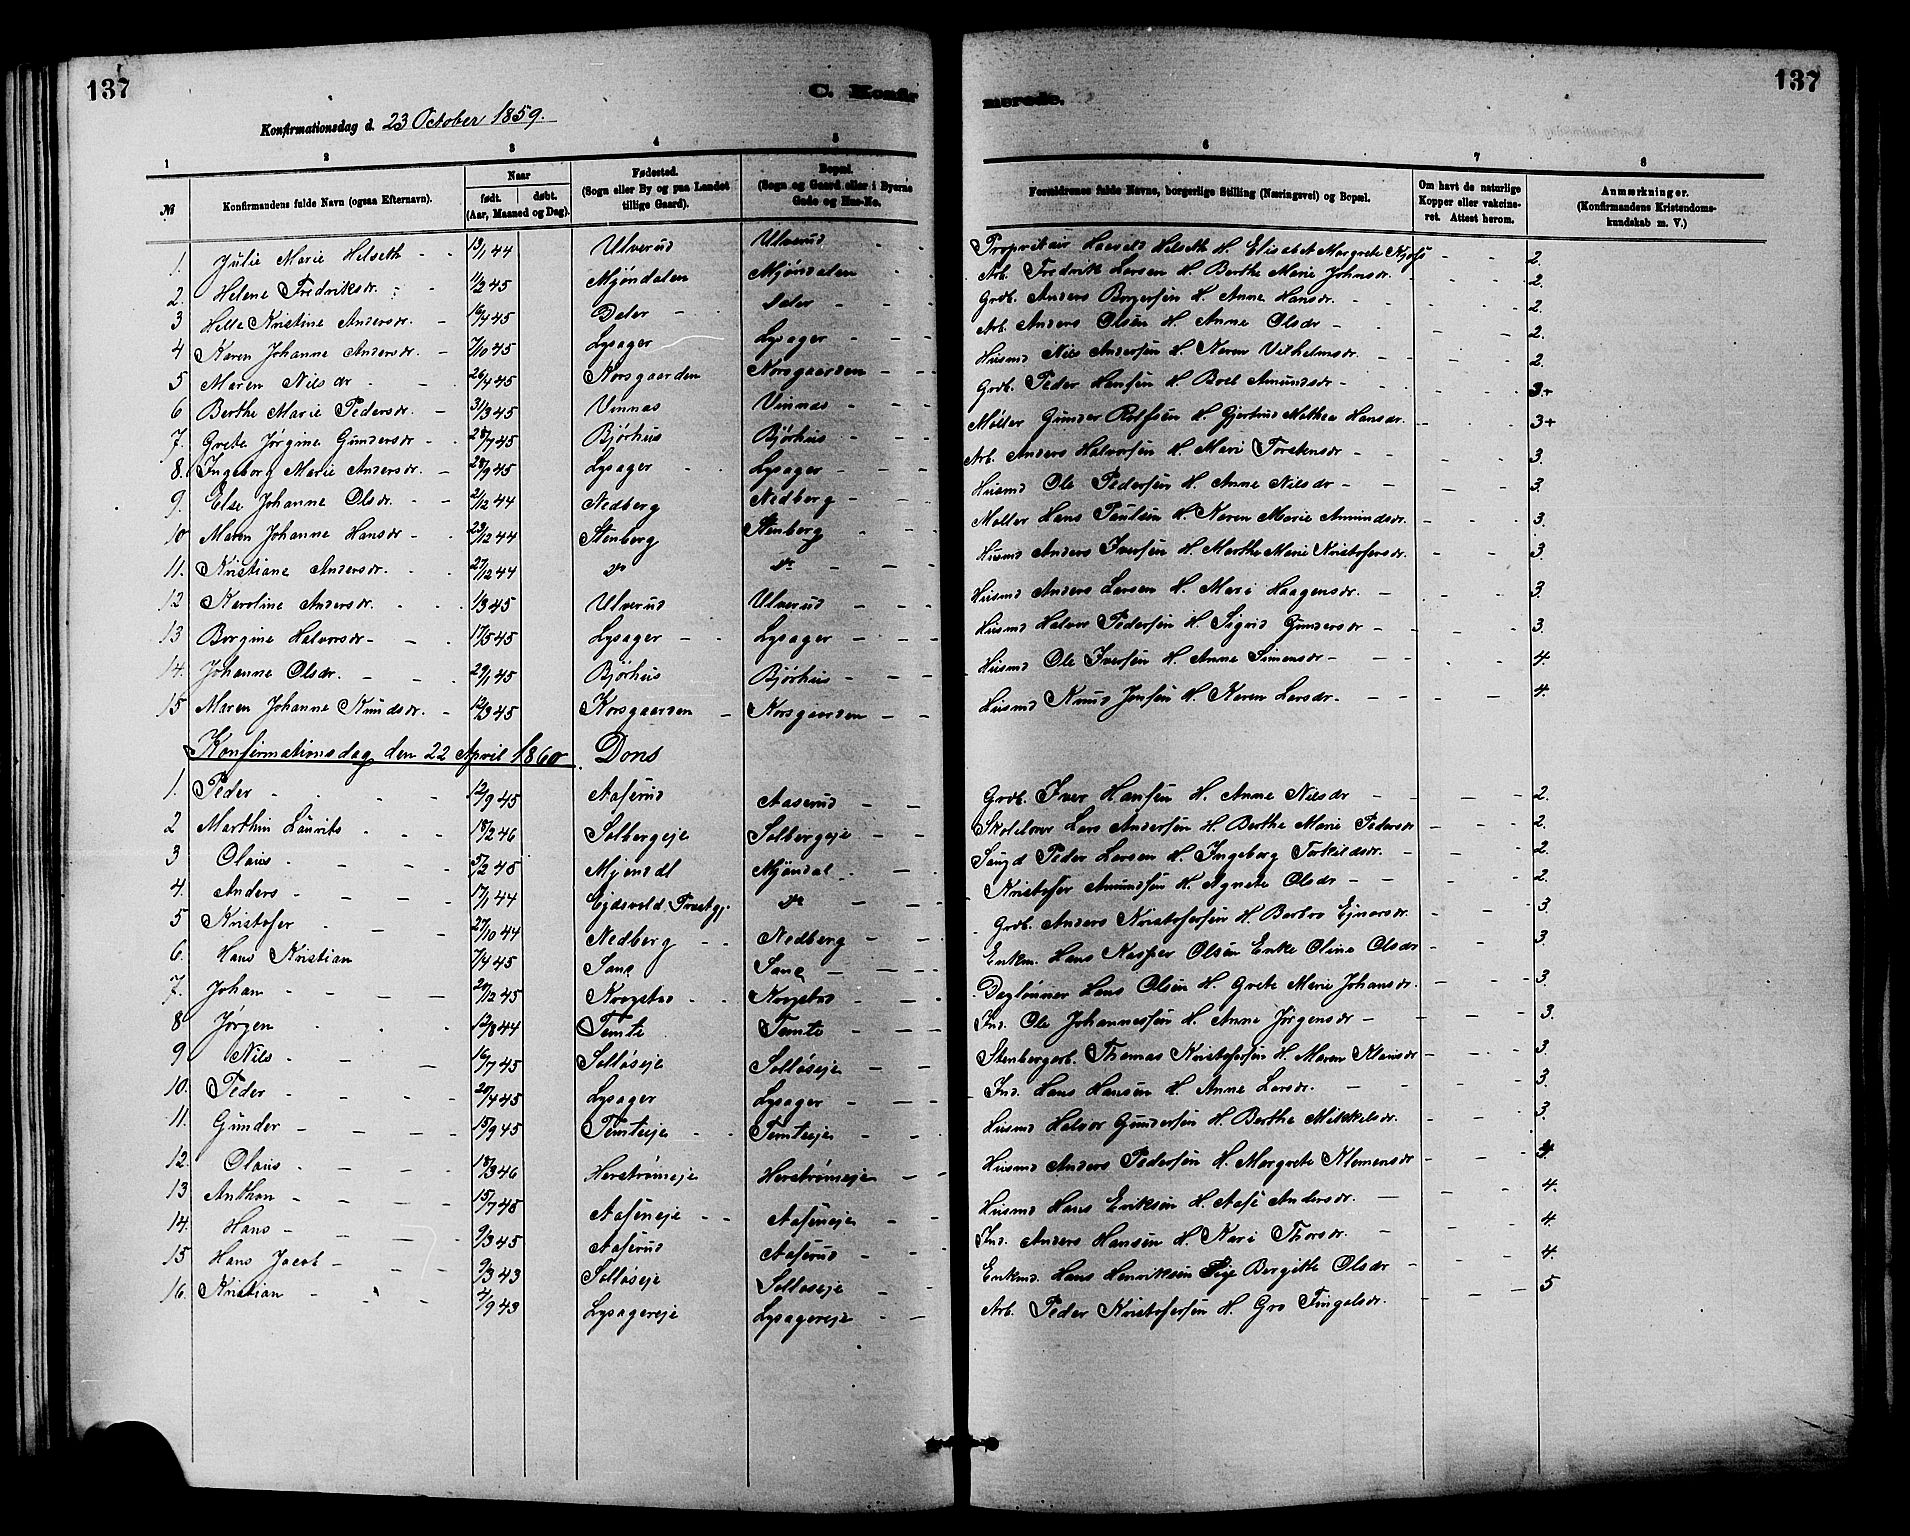 137
C. Konfir
merede.
137
Konfirmationsdag d. 23 October 1859.
1 2 3 4 5 6 7 8
№
Konfirmandens fulde Navn (ogsaa Efternavn).
Naar
født. døbt.
(Aar, Maaned og Dag).
Fødested.
(Sogn eller By og paa Landet
tillige Gaard).
Bopæl.
(Sogn og Gaard eller i Byerne
Gade og Hus-No.
Forældrenes fulde Navne, borgerlige Stilling (Næringsvei) og Bopæl.
Om havt de naturlige
Kopper eller vakcine-
ret. Attest herom.
Anmærkninger.
(Konfirmandens Kristendoms-
kundskab m. V.)
1. Julie Marie Helseth - - 13/1 44 Ulverud Ulverud - - Propritair Helseth H. Elisabet Margrete - - 2.
2 Helene Fredriksdr. - 11/2 45 Mjøndalen Mjøndalen - Arb. Fredrik Larsen H. Berthe Marie Johnsdr. - - 2.
3 Helle Kristine Andersdr. - 16/4 45 Daler - Daler - - Grdb. Anders Borgersen H. Anne Hansdr - - 2.
4 Karen Johanne Andersdr. - 7/10 45 Lysager Lysager - - Arb. Anders Olsen H. Anne Olsdr - - 2.
5 Maren Nilsdr - - 26/4 45 Korsgaarden Korsgaarden - - Husmd Nils Andersen H. Karen Vilhelmsdr. - - 2.
6 Berthe Marie Pedersdr. - 31/3 45 Vinnas Vinnas - - Grdb. Peder Hansen H. Boel Amundsdr - - 3+
7. Grete Jørgine Gundersdr - - 28/7 45 Bjørhus Bjørhus - - Møller Gunder Rolfsen H. Gjertrud Mathea Hansdr. - - 3+
8. Ingeborg Marie Andersdr. - 28/9 45 Lysager - Lysager - - Arb. Anders Halvorsen H. Mari Torstensdr - - 3.
9. Else Johanne Olsdr. - - 21/12 44 Nedberg Nedberg - - Husmd Ole Pedersen H. Anne Nilsdr - - 3.
10 Maren Johanne Hansdr - - 23/12 44 Stenberg Stenberg - - Møller Hans Paulsen H. Karen Marie Amundsdr. - - 3.
11. Kristiane Andersdr. - - 27/12 44 do do - - Husmd Anders Iversen H. Marthe Marie Kristofersdr. - - 3.
12 Karoline Andersdr. - - 1/3 45 Ulverud Ulverud - - Husmd Anders Larsen H. Mari Haagensdr. - - 3.
13 Borgine Halvorsdr - - 17/5 45 Lysager - Lysager - - Husmd Halvor Pedersen H. Sigrid Gundersdr - - 3.
14. Johanne Olsdr. - - 29/1 45 Bjørhus Bjørhus - - Husmd Ole Iversen H. Anne Simensdr - - 4.
15 Maren Johanne Knudsdr. - 12/3 45 Korsgaarden - Korsgaarden - - Husmd Knud Jensen H. Karen Larsdr. - - 4.
Konfirmationsdag den 22 April 1860. Dons
1. Peder - - 12/9 45 Aaserud Aaserud - - Grdb. Iver Hansen H. Anne Nilsdr - - 2.
2 Marthin Laurits - - 18/2 46 Solbergeje Solbergeje - - Skolelærer Lars Andersen H. Berthe Marie Pedersdr - - 2.
3 Olaus - - 5/2 45 Mjøndl Mjøndal - - Peder Larsen H. Ingeborg Torkildsdr. - - 2.
4. Anders - - 17/1 44 Ejdsvold Præstgj. do - - Kristofer Amundsen H. Agnete Olsdr - - 2.
5 Kristofer - - 27/10 44 Nedberg - - Nedberg - - Grdb. Anders Kristofersen H. Berbro Ejnarsdr. - - 3.
6. Hans Kristian 7/4 45 Sane Sane - - Enkm. Hans Kasper Olsen Enke Oline Olsdr - - 3.
7. Johan - - 20/12 45 Krogstad - - Krogstad - - Daglønner Hans Olsen H. Grete Marie Johansdr. - - 3.
8 Jørgen - - 12/8 44 Temte Temte - - Ind. Ole Johannessen H. Anne Jørgensdr - - 3.
9 Nils - - 16/7 45 Solløseje Solløseje - - Stenbergarb. Thomas Kristofersen H. Maren Klausdr - - 3.
10. Peder - - 20/4 45 Lysager Lysager - - Ind. Hans Hansen H. Anne Larsdr. - - 3.
11. Gunder - - 15/9 45 Temteeje - - Temteeje - - Husmd Halvor Gundersen H. Berthe Mikkelsdr. - - 3.
12. Olaus - - 18/3 46 Herstrømseje Herstrømseje - - Husmd Anders Pedersen H. Margrete Klemensdr - - 4.
13 Anthon - - 15/7 45 Aaseneje - - Aaseneje - - Husmd Hans Eriksen H. Aase Andersdr. - - 4.
14. Hans - - 9/3 45 Aaserud Aaserud - - Ind. Anders Hansen H. Kari Thorsdr. - - 4.
15 Hans Jacob - - 9/3 43 Solløseje Solløseje - - Enkmd. Hans Henriksen Bergitte Olsdr - - 4.
16. Kristian - - 4/9 43 Lysagereje Lysagereje - - Arb. Peder Kristofersen H. Gro Fingalsdr. - - 5